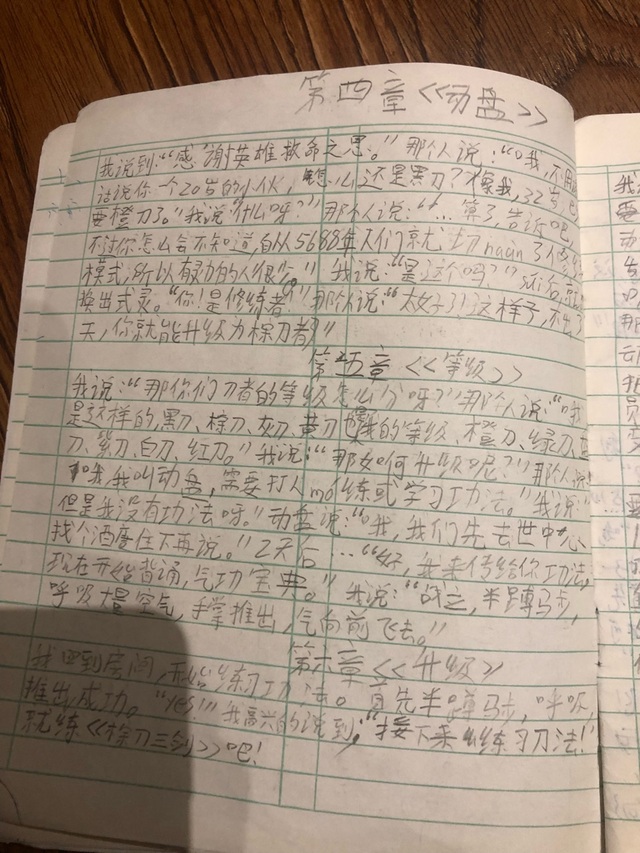 第四章《动盘》
我说到:“感谢英雄救命之恩。”那个人说:“哦,不用
话说你一个20岁的小伙,怎么还是黑刀?像我,32岁,
要橙刀了。”我说“什么呀?”那个人说:“…算了,告诉吧,
不过你怎么会不知道,自从5688年人们就切huàn了
模式,所以有功的人很少。”我说:“是这个吗?”说后,就
换出式灵。“你!是修练者!”那个人说:“太好了!这样子,不出
天,你就能升级为棕刀者!”
第五章《等级》
我说:“那你们刀者的等级怎么分呀?”那个人说:“哦
是这样的,黑刀、棕刀、灰刀、黄刀 我的等级、橙刀、绿刀、蓝
刀、紫刀、白刀、红刀。”我说:“那如何升级呢?”那个人说:
“哦,我叫动盘,需要打人mó练或学习功法。”我说:“
但是我没有功法呀。”动盘说:“哦,我们先去世中心
找个酒店住下再说。”2天后…“好,我来传给你功法,
现在开始背诵,气功宝典。”我说:“战之,半蹲马步,
呼吸大量空气,手掌推出,气向前飞去。”
第六章《升级》
我回到房间,开始练习功法。首先半蹲马步,呼吸
推出,成功。“YES!”我高兴的说到,“接下来练习刀法!”
就练《棕刀三剑》吧!